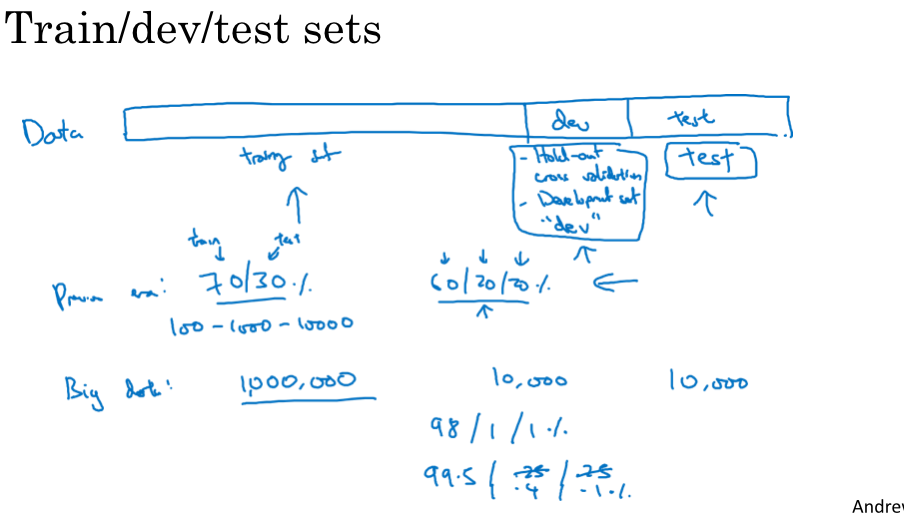 Train/dev/test sets
Data dev test
training set
- Hold-out
cross validation
- Development set
"dev"
test
train test
Previous era: 70/30 % 60/20/20 %
100 - 1000 - 10000
Big data: 1,000,000 10,000 10,000
98 / 1 / 1 %
99.5 / .25 / .25
.4 .1 %
Andrew